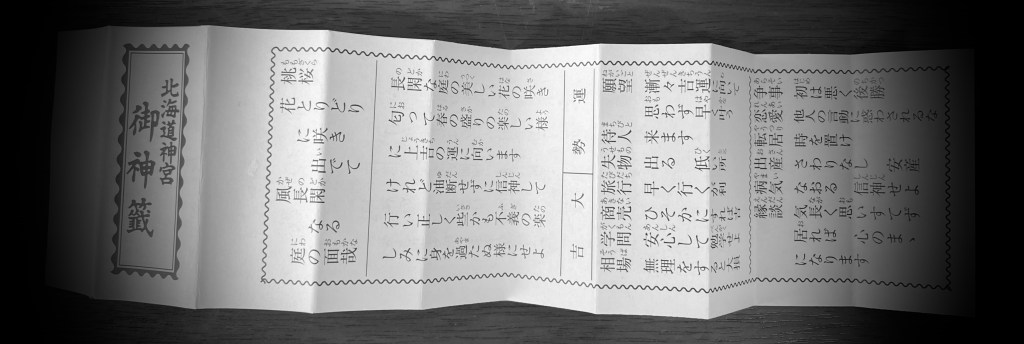 北海道神宮
御神籤
桃桜
花とりどり
に咲き出でて
風長閑なる
庭の面哉
運勢 大吉
長閑な庭の美しい花の咲き
匂って春の盛りの楽しい様
に上吉の運に向います
けれど油断せずに信神して
行い正しく些かも不義の楽
しみに身を過たぬ様にせよ
願望 漸々吉運に向いて思わず早く叶う
待人 来ます
失物 出る 低い所
旅行 早く行くが利
商売 ひそかにすれば吉
学問 安心して勉学せよ
相場 無理をすると大損
争事 初は悪く後勝
恋愛 他人の言動に惑わされるな
転居 時を置け
出産 さわりなし 安産
病気 なおる 信神せよ
縁談 気長く思いすてず
居れば 心のまゝ
になります